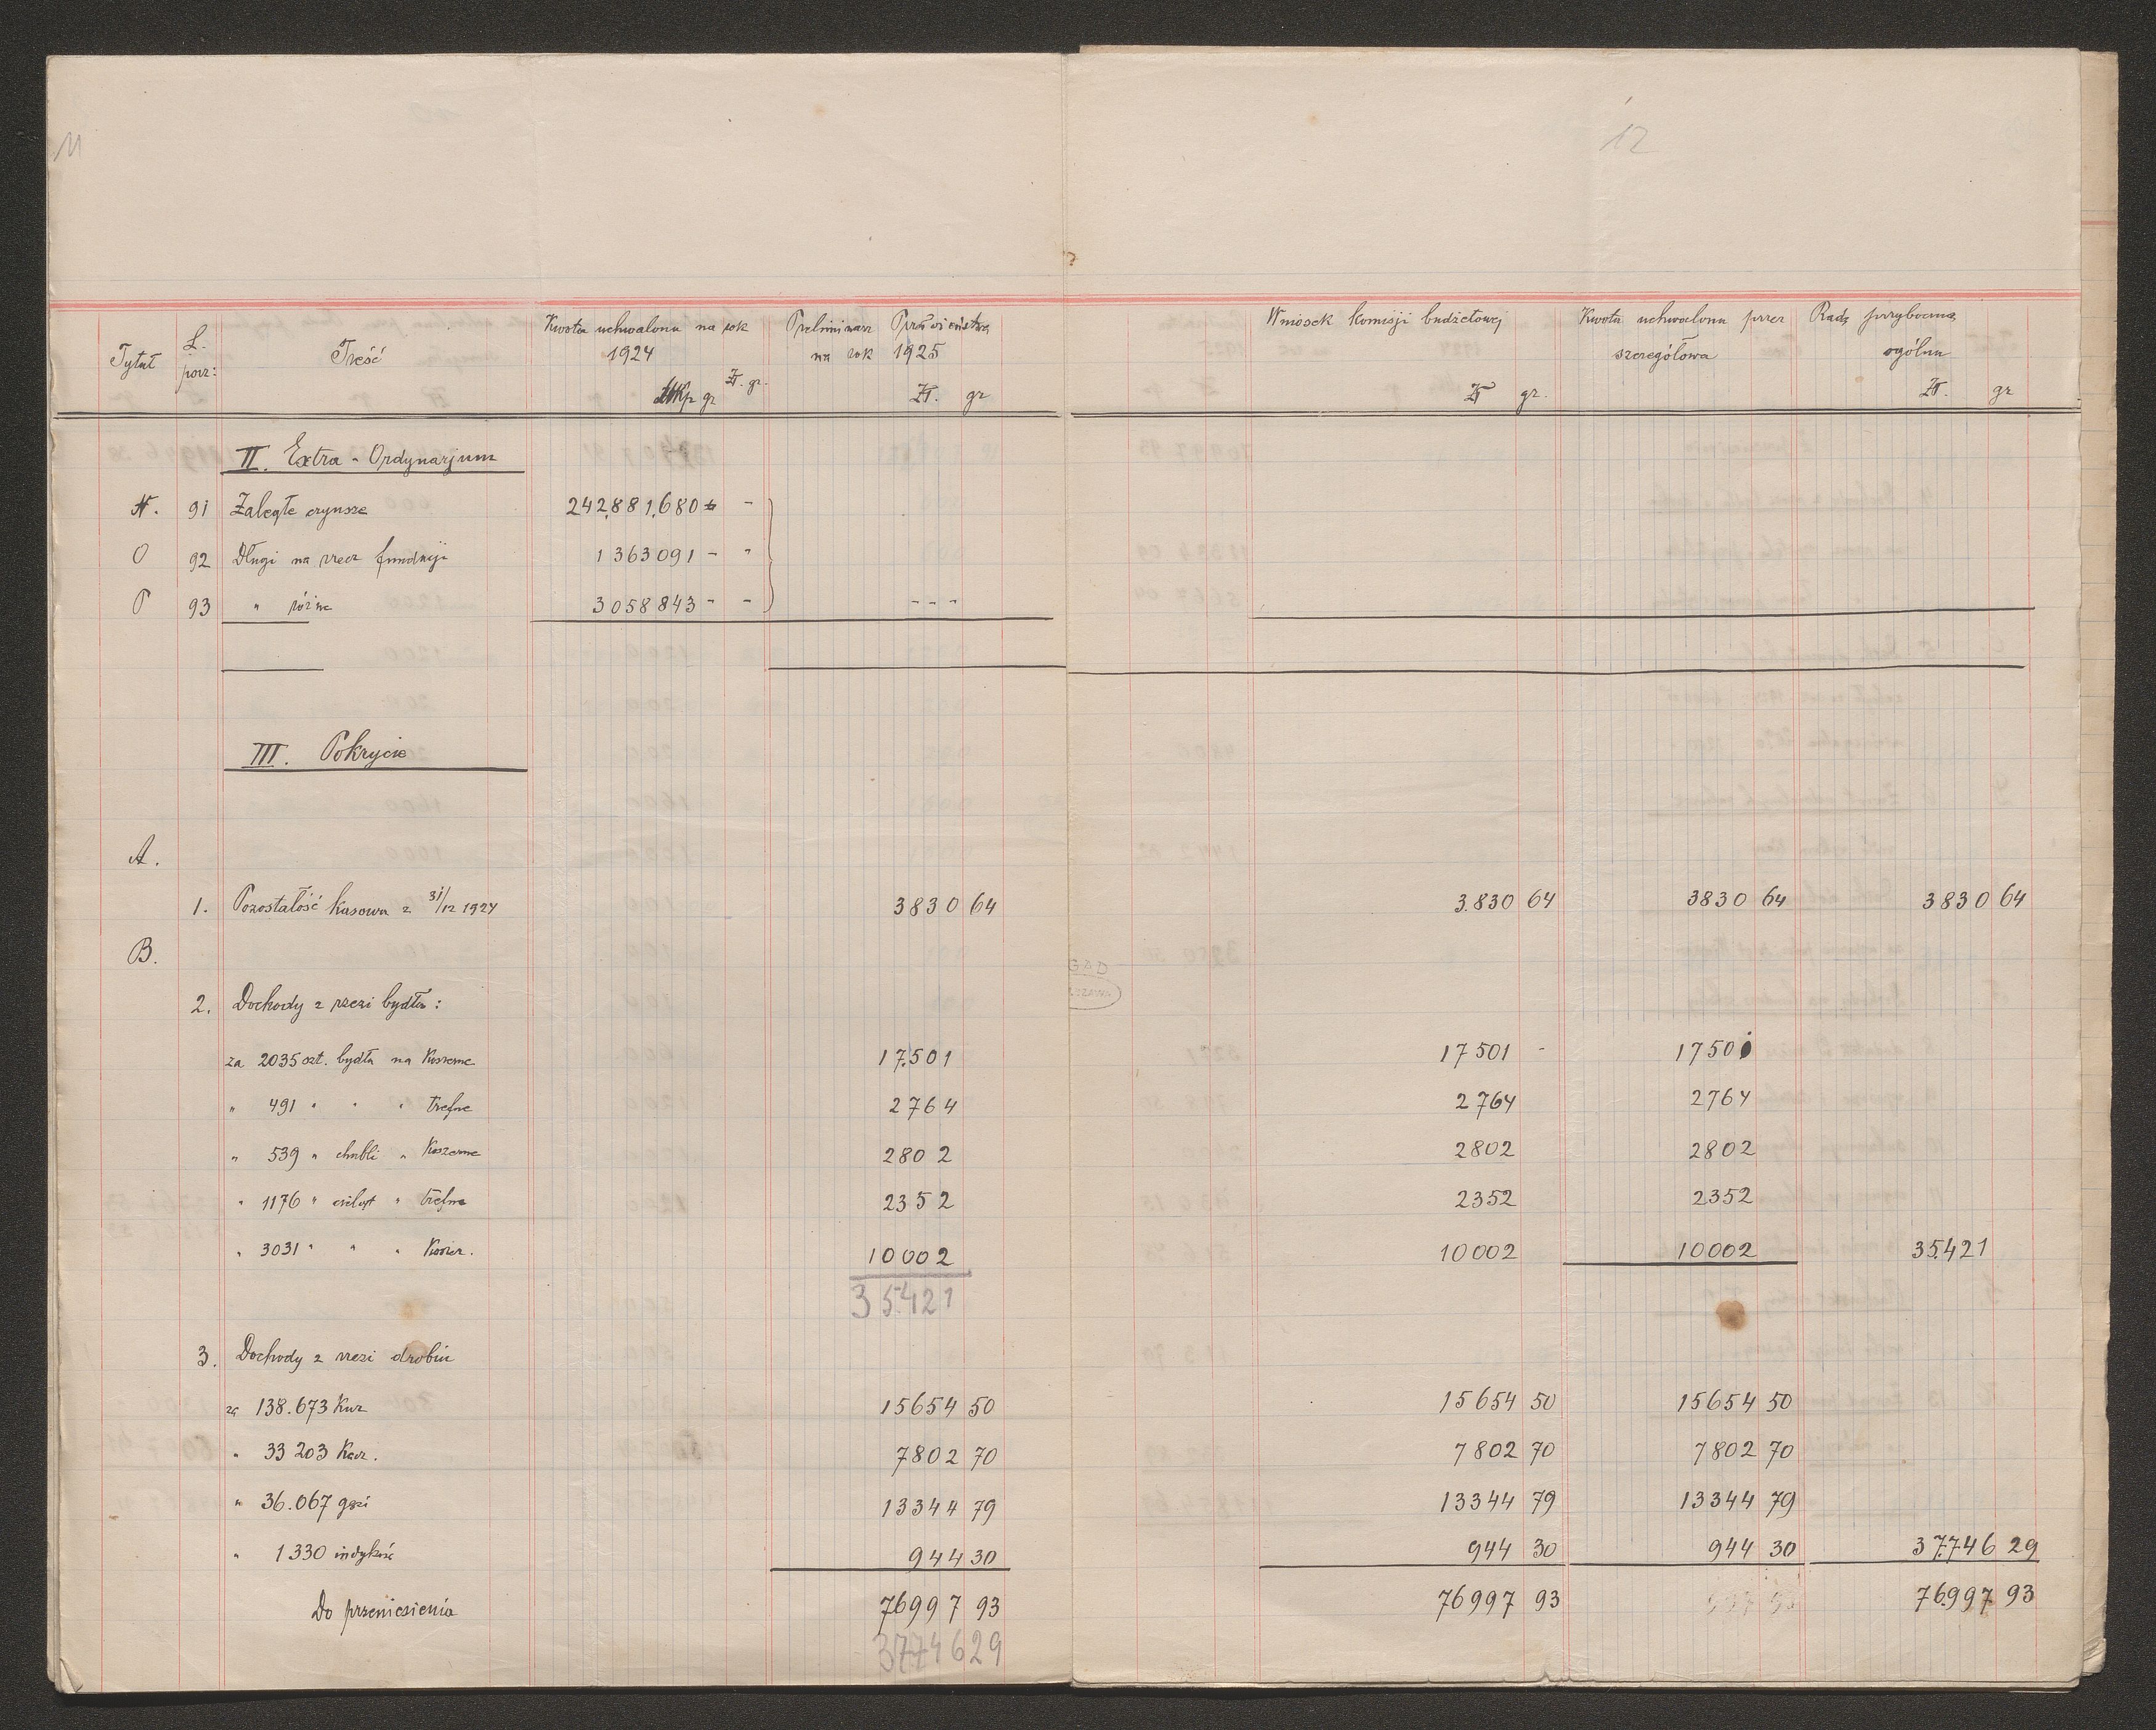 11
12
Tytuł L. porz: Treść Kwota uchwalona na rok 1924 Preliminarz na rok 1925 Wniosek Komisji budżetowej Kwota uchwalona przez Radę przyboczną
szczegółowa ogólna
Mkp gr Zł. gr. Zł. gr Zł gr. Zł. gr
II. Extra-Ordynarjum
N. 91 Zaległe czynsze 242,881,680 -
O 92 Długi na rzecz fundacji 1363091 - "
P 93 " różne 3058843 - - - - -
III. Pokrycie
A.
1. Pozostałość Kasowa z 31/12 1924 3830 64 3.830 64 3830 64 3830 64
B.
2. Dochody z rzezi bydła:
za 2035 szt. bydła na Koszerne 17.501 17501 - 17501
" 491 " " " trefne 2764 2764 2764
" 539 " " Koszerne 2802 2802 2802
" 1176 " cieląt " trefne 2352 2352 2352
" 3031 " " " Koszer. 10002 10002 10002 35.421
35.421
3. Dochody z rzezi drobiu
za 138.673 Kur 15654 50 15654 50 15654 50
" 33 203 Kacz. 7802 70 7802 70 7802 70
" 36.067 gęsi 13344 79 13344 79 13344 79
" 1330 indyków 944 30 944 30 944 30 37.746 29
Do przeniesienia 76997 93 76997 93 76.997 93
37.746 29